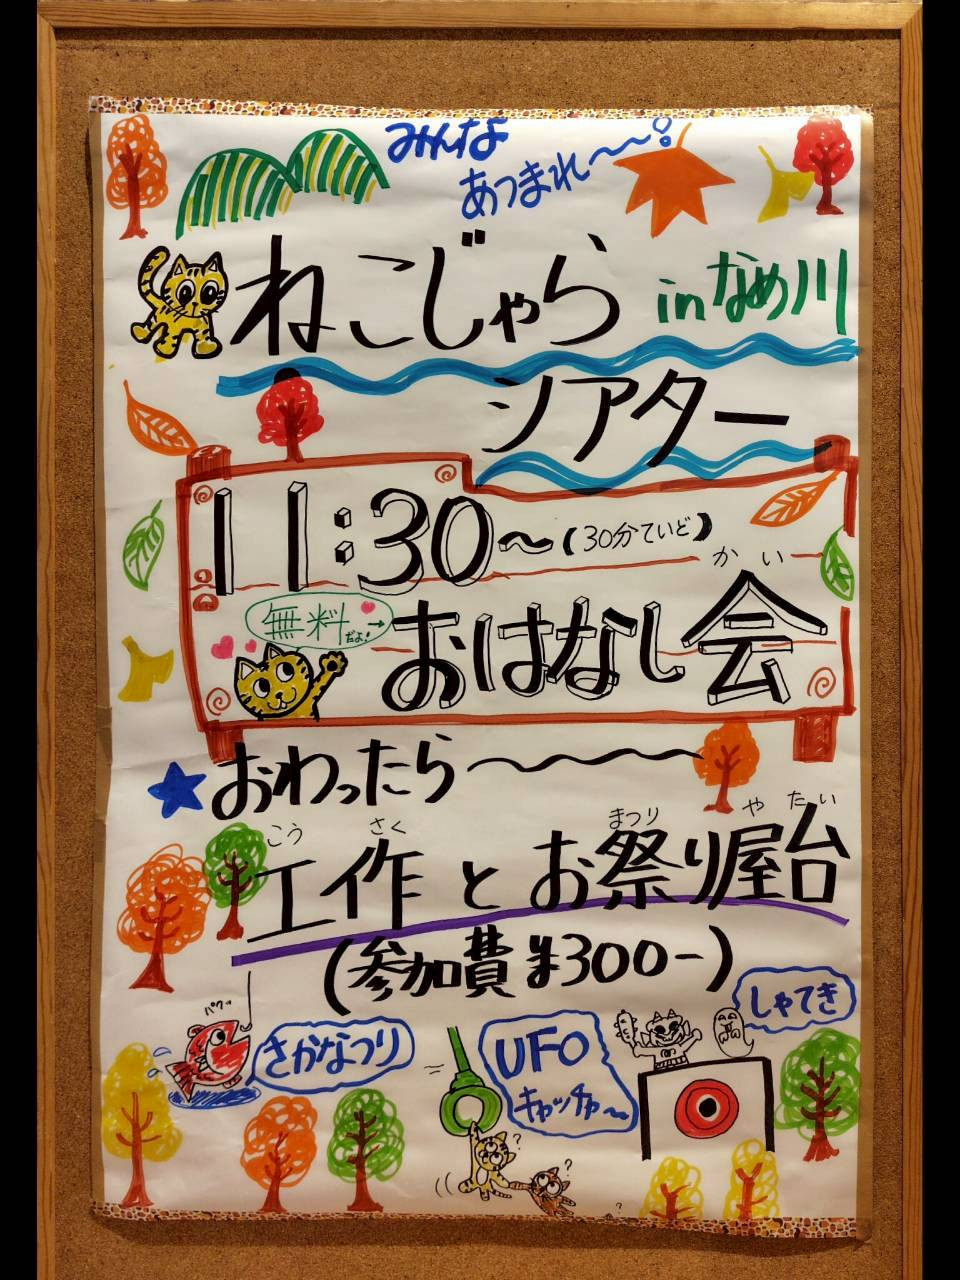 みんな
あつまれ〜〜!
ねこじゃら in なめ川
シアター
11:30〜(30分ていど)
無料だよ!→
かい
おはなし会
★おわったら〜〜〜
こう さく まつり やたい
工作とお祭り屋台
(参加費¥300-)
しゃてき
パクッ
さかなつり
UFO
キャッチャ〜
?
?
?